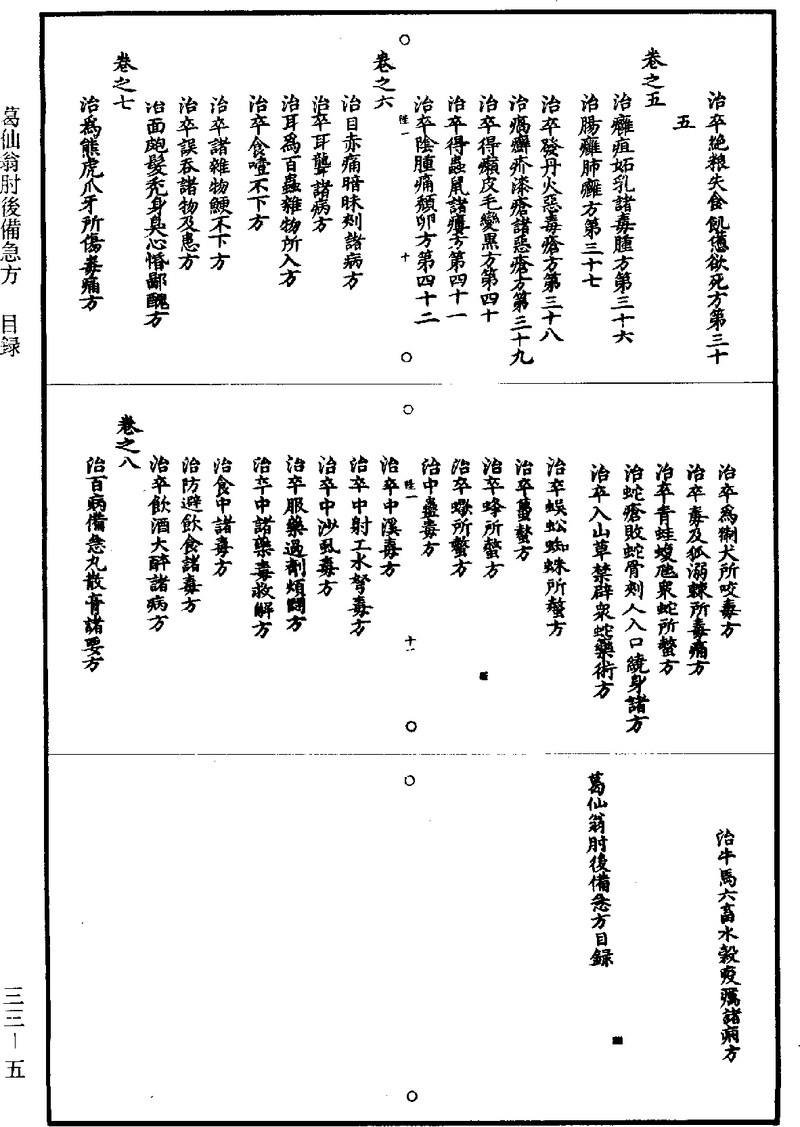 葛仙翁肘後備急方 目録
三三—五
治卒絶粮失食飢憊欲死方第三十
五
卷之五
治癰疽妬乳諸毒腫方第三十六
治腸癰肺癰方第三十七
治卒發丹火惡毒瘡方第三十八
治瘑癬疥漆瘡諸惡瘡方第三十九
治卒得癩皮毛變黒方第四十
治卒得蟲鼠諸瘻方第四十一
治卒陰腫痛頹卵方第四十二
陸一 十
卷之六
治目赤痛暗昧刺諸病方
治卒耳聾諸病方
治耳爲百蟲雜物所入方
治卒食噎不下方
治卒諸雜物鯁不下方
治卒誤吞諸物及患方
治面皰髮秃身臭心惛鄙醜方
卷之七
治爲熊虎爪牙所傷毒痛方
治卒爲猘犬所咬毒方
治卒毒及狐溺棘所毒痛方
治卒青蛙蝮虺衆蛇所螫方
治蛇瘡敗蛇骨刺人入口繞身諸方
治卒入山草禁辟衆蛇藥術方
治卒蜈蚣蜘蛛所螫方
治卒蠆螫方
治卒蜂所螫方
治卒蠍所螫方
治中蠱毒方
陸一 十一
治卒中溪毒方
治卒中射工水弩毒方
治卒中沙虱毒方
治卒服藥過劑煩悶方
治卒中諸藥毒救解方
治食中諸毒方
治防避飲食諸毒方
治卒飲酒大醉諸病方
卷之八
治百病備急丸散膏諸要方
治牛馬六畜水穀疫癘諸病方
葛仙翁肘後備急方目録